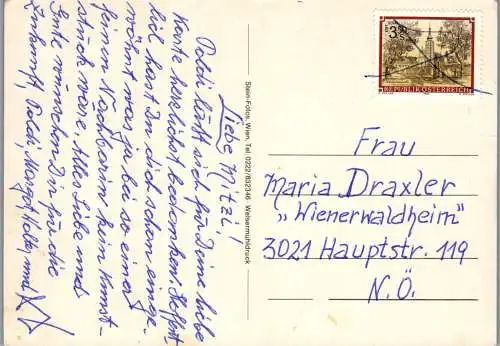 Liebe Mitzi!
Poldi läßt sich für Deine liebe
Karte herzlichst bedanken. Hoffent-
lich hast Du dich schon einge-
wöhnt was ja bei so einer
feinen Nachbarin kein Kunst-
stück wäre. Alles Liebe und
Gute wünschen Dir für die
Zukunft, Poldi, Margot, und
Stein-Fotos, Wien, Tel. 0222/832346 · Welsermühldruck
3 S
REPUBLIK ÖSTERREICH
Frau
Maria Draxler
„Wienerwaldheim"
3021 Hauptstr. 119
N.Ö.